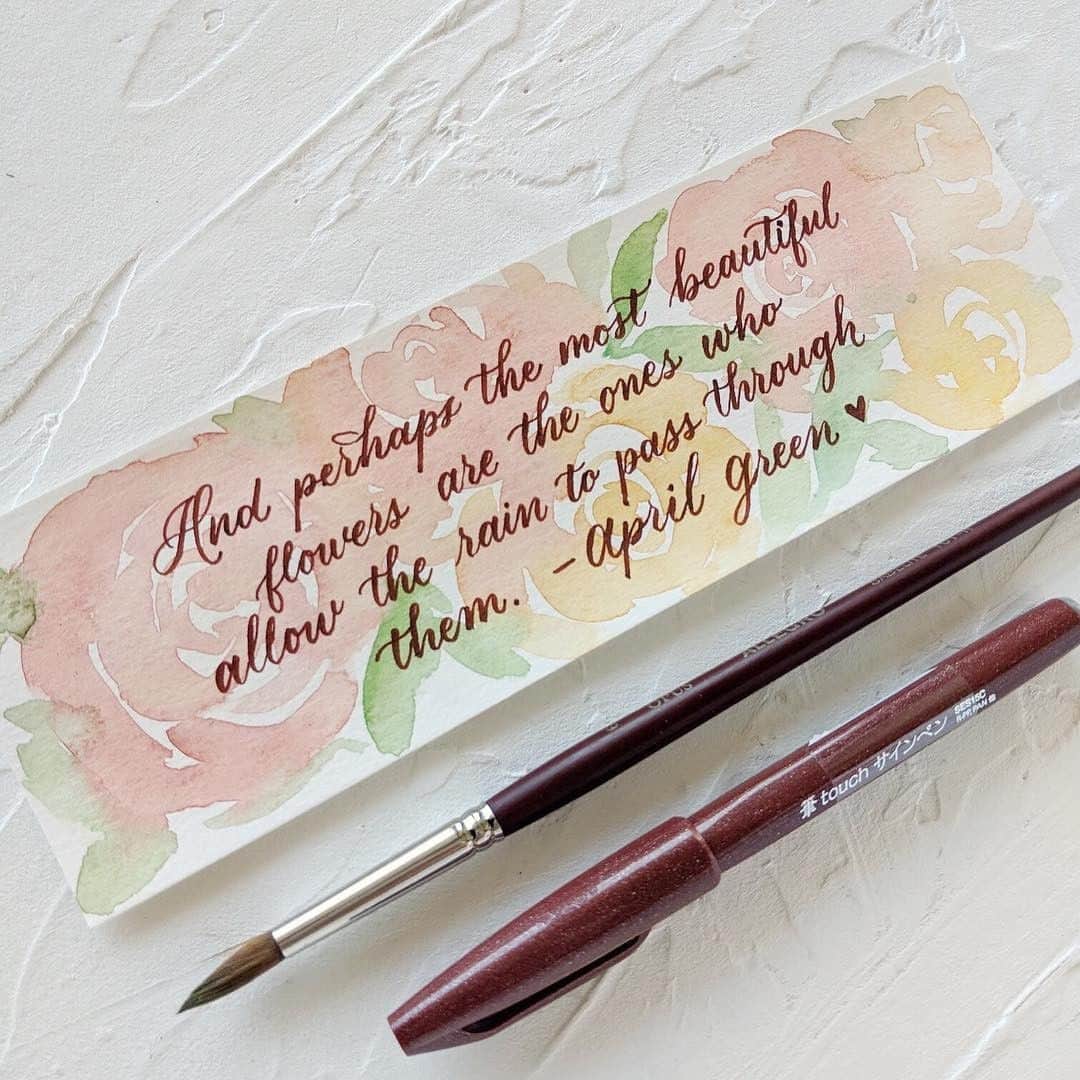 And perhaps the most beautiful
flowers are the ones who
allow the rain to pass through
them. -april green ♥
OPUS ALLEGRO
筆 touch サインペン
SES15C